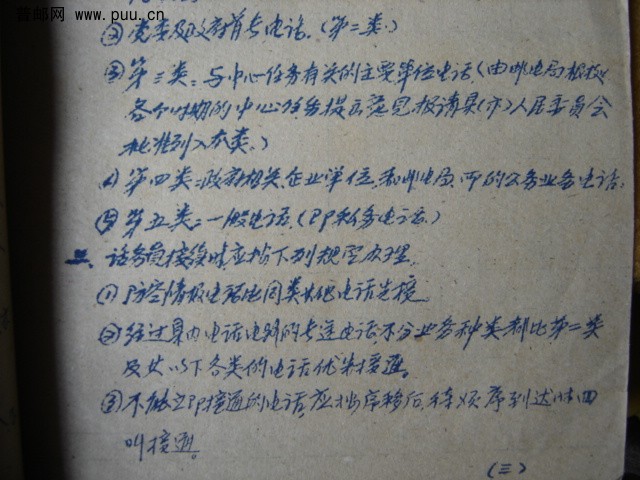 普邮网 www.puu.cn
②党委及政府首长电话。(第二类。)
③第三类:与中心任务有关的主要单位电话(由邮电局根据
各个时期的中心任务提出意见报请县(市)人民委员会
批准列入本类。)
④第四类:政府机关、企业单位、和邮电局、所的公务业务电话。
⑤第五类:一般电话。(即私务电话。)
二、话务员接续时应按下列规定办理。
(1)防空情报电话比同类其他电话先接
②经过县内电话电路的长途电话不分业务种类都比第二类
及其以下各类的电话优先接通。
③不能立即接通的电话,应挂序移后,待顺序到达时回
叫接通。
(三)